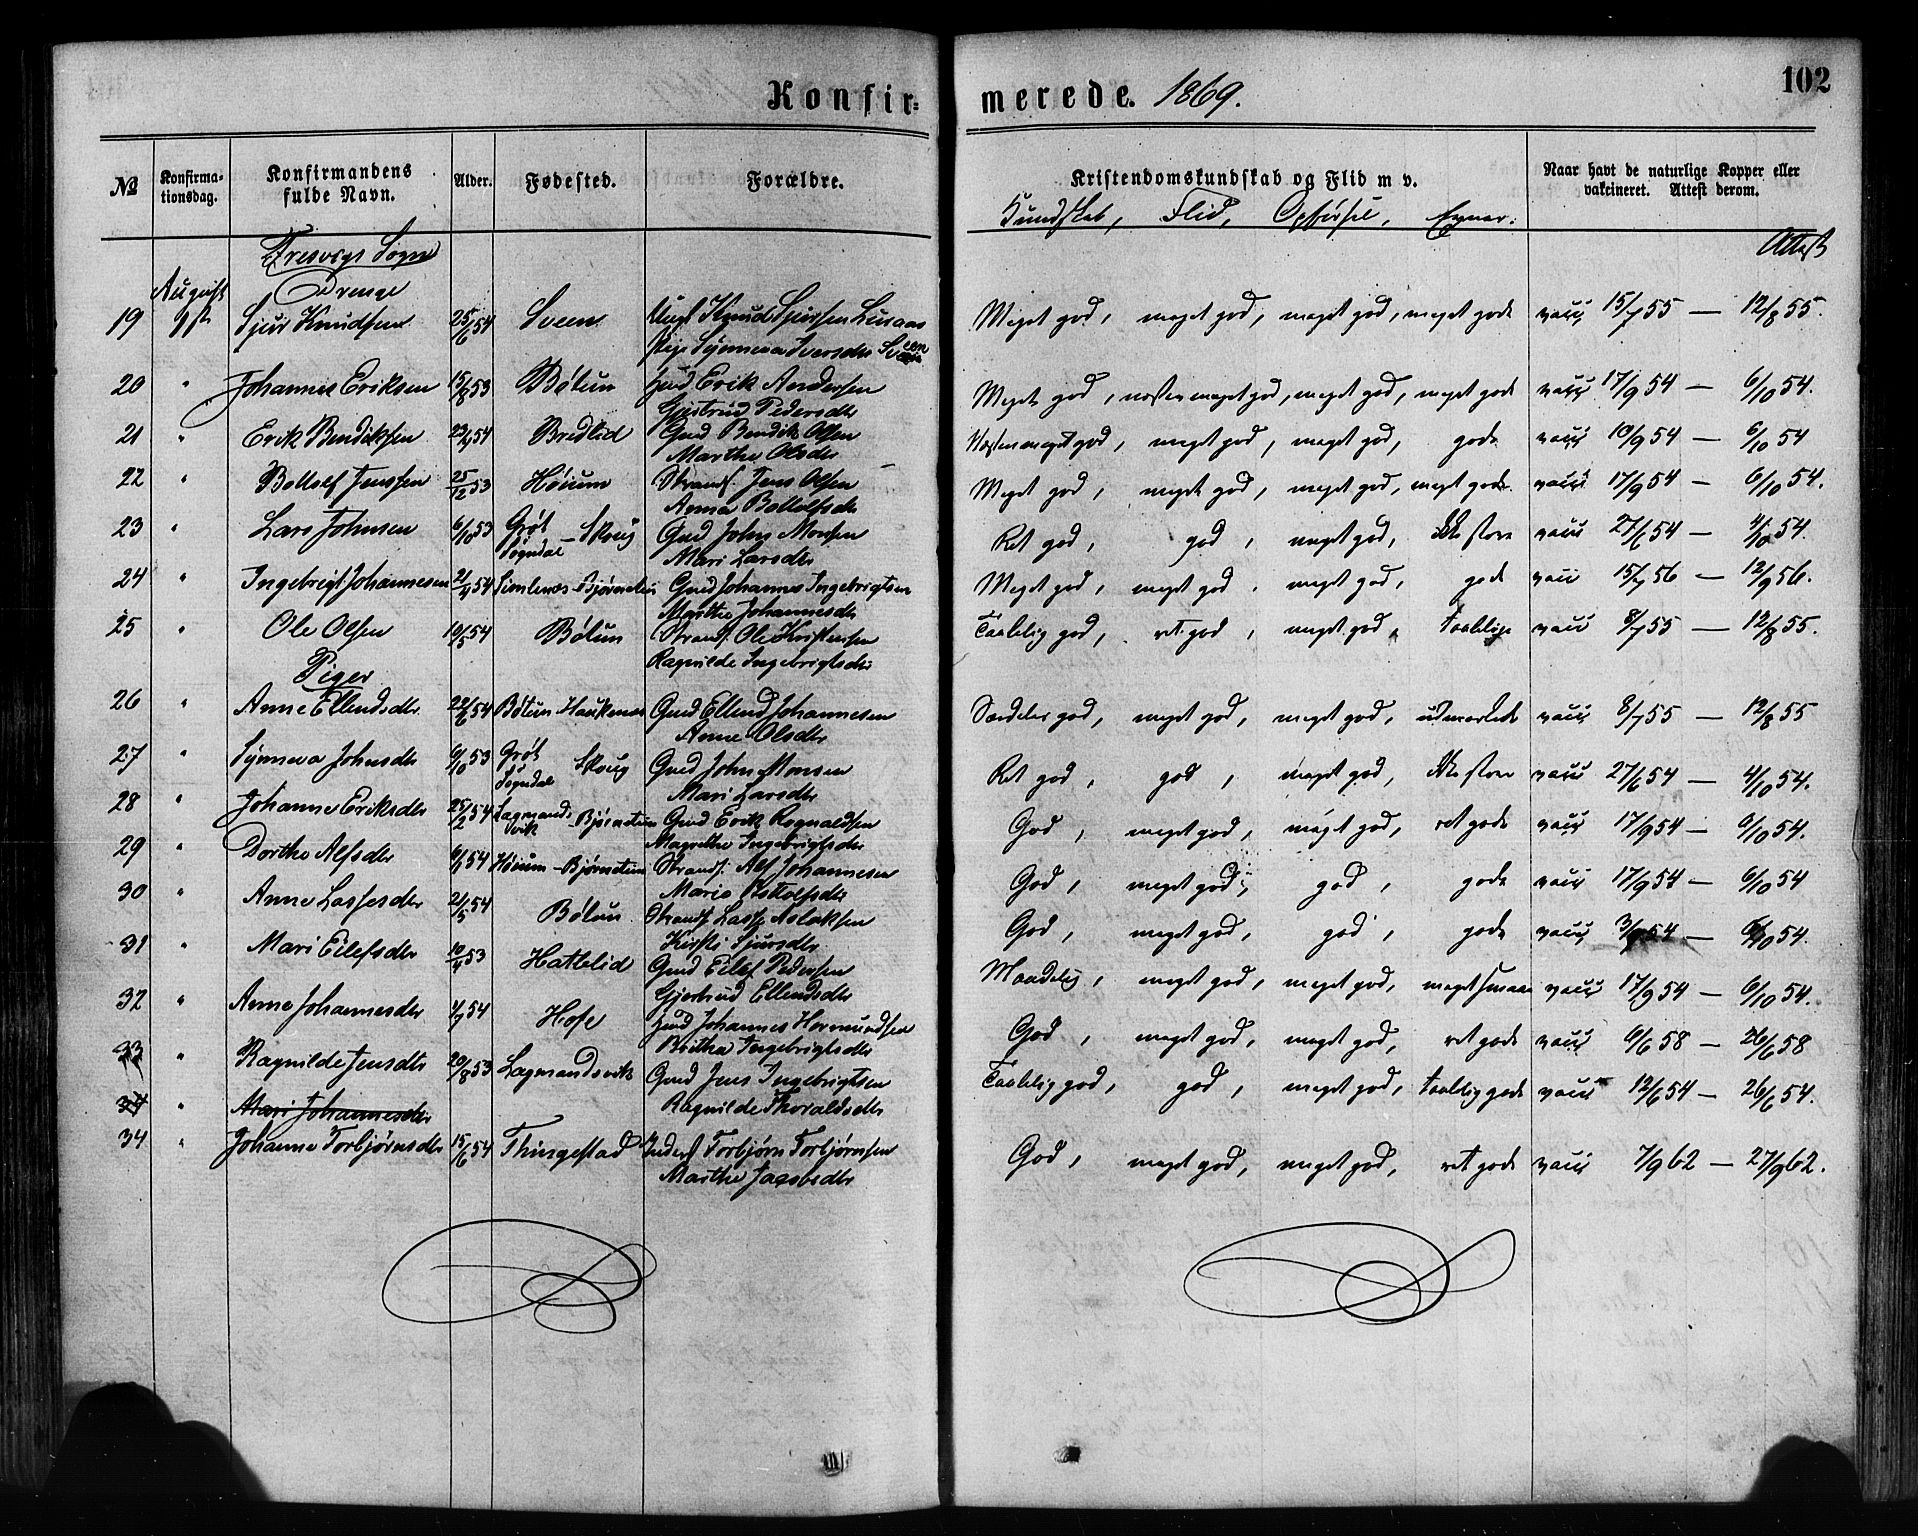 Konfir=
merede. 1869.
102
No
Konfirma-
tionsdag.
Konfirmandens
fulde Navn.
Alder.
Fødested.
Forældre.
Kristendomskundskab og Flid m v.
Naar havt de naturlige Kopper eller
vakcineret. Attest derom.
Kundskab, Flid, Opførsel, Evner.
Attest
Fresvigs Sogn
Drenge
August
19 1ste Sjur Knudsen 25/6 54 Sveen Knud Sjursen Lusaas Meget god, meget god, meget god, meget gode vacc 15/7 55 — 12/8 55.
Pige Synneva Iversdtr Sveen
20 " Johannes Eriksen 15/8 53 Bøtun Gmd Erik Andersen Meget god, næsten meget god, meget god, meget gode vacc 17/9 54 — 6/10 54.
Gjertrud Pedersdtr
21 " Erik Bendiksen 54 Bredlid Gmd Bendik Olsen Næsten meget god, meget god, meget god, gode vacc 10/9 54 — 6/10 54
Marthe Olsdtr
22 " Bottolf Jenssen 25/12 53 Høium Strands. Jens Olsen Meget god, meget god, meget god, meget gode vacc 17/9 54 — 6/10 54.
Anna Bottolfsdtr
23 " Lars Johnsen 6/10 53 Grøt Skoug Gmd John Monsen Ret god, god, meget god, ikke store vacc 27/6 54 — 4/10 54.
Sogndal Mari Larsdtr
24 " Ingebrigt Johannesen 21/4 54 Simlenæs-Bjørnetun Gmd Johannes Ingebrigtsen Meget god, meget god, meget god, gode vacc 15/7 56 — 12/9 56.
Marthe Johannesdtr
25 " Ole Olsen 19/5 54 Bøtun Strands. Ole Kristensen Taalelig god, ret god, meget god, taalelige vacc 8/7 55 — 12/8 55.
Ragnilde Ingebrigtsdtr
Piger
26 " Anne Ellendsdtr 54 Bøtun Haukenæs Gmd Ellend Johannesen Særdeles god, meget god, meget god, udmærkede vacc 8/7 55 — 12/8 55
Anne Olsdtr
27 " Synneva Johnsdtr 6/10 53 Grøt Skoug Gmd John Monsen Ret god, god, meget god, ikke store vacc 27/6 54 — 4/10 54.
Sogndal Mari Larsdtr
28 " Johanne Eriksdtr 25/2 54 Lagmands-vik - Bjørnetun Gmd Erik Rognaldsen God, meget god, meget god, ret gode vacc 17/9 54 — 6/10 54.
Magrethe Ingebrigtsdtr
29 " Dorthe Alfsdtr 54 Høium - Bjørnetun Strands. Alf Johannesen God, meget god, god, gode vacc 17/9 54 — 6/10 54
Marie Bottolfsdtr
30 " Anne Lassesdtr 21/5 54 Bøtun Strands. Lasse Aslaksen God, meget god, god, gode vacc 54 — 6/10 54.
Kirsti Sjursdtr
31 " Mari Eilefsdtr 10/4 53 Hattelid Gmd Eilef Pedersen Maadelig, meget god, meget god, meget smaae vacc 17/9 54 — 6/10 54.
Gjertrud Ellendsdtr
32 " Anne Johannesdtr 54 Hofe Gmd Johannes Hermundsen God, meget god, meget god, ret gode vacc 6/6 58 — 26/6 58
Brithe Ingebrigtsdtr
33 " Ragnilde Jensdtr 20/8 53 Lagmandsvik Gmd Jens Ingebrigtsen Taalelig god, god, meget god, taalelig gode vacc 12/6 54 — 26/6 54.
Ragnilde Thoraldsdtr
34 " Mari Johannesdtr
34 " Johanne Torbjørnsdtr 15/6 54 Thingestad Inderst Torbjørn Torbjørnsen God, meget god, meget god, ret gode vacc 7/9 62 — 27/9 62.
Marthe Jacobsdtr